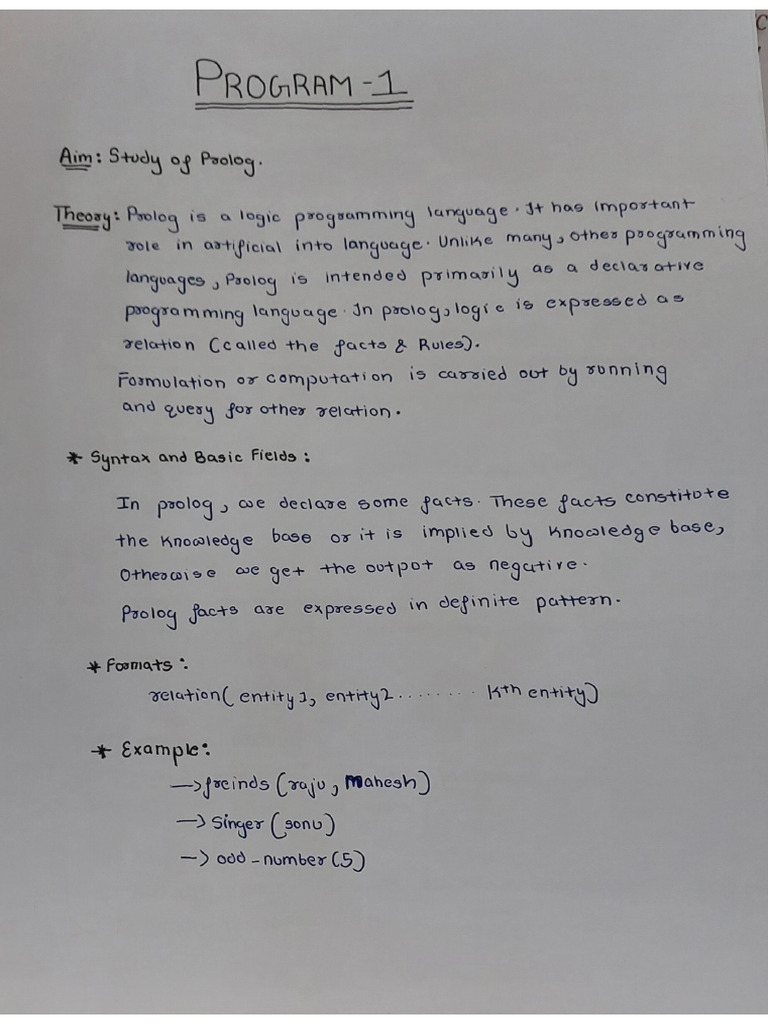 PROGRAM-1
Aim: Study of Prolog.
Theory: Prolog is a logic programming language. It has important
role in artificial into language. Unlike many, other programming
languages, Prolog is intended primarily as a declarative
programming language. In prolog, logic is expressed as
relation (called the facts & Rules).
Formulation or computation is carried out by running
and query for other relation.
* Syntax and Basic Fields:
In prolog, we declare some facts. These facts constitute
the knowledge base or it is implied by knowledge base,
Otherwise we get the output as negative.
Prolog facts are expressed in definite pattern.
* Formats:
relation( entity1, entity2 ........ Kth entity)
* Example:
→ freinds (raju, Mahesh)
→ Singer (sonu)
→ odd_number (5)